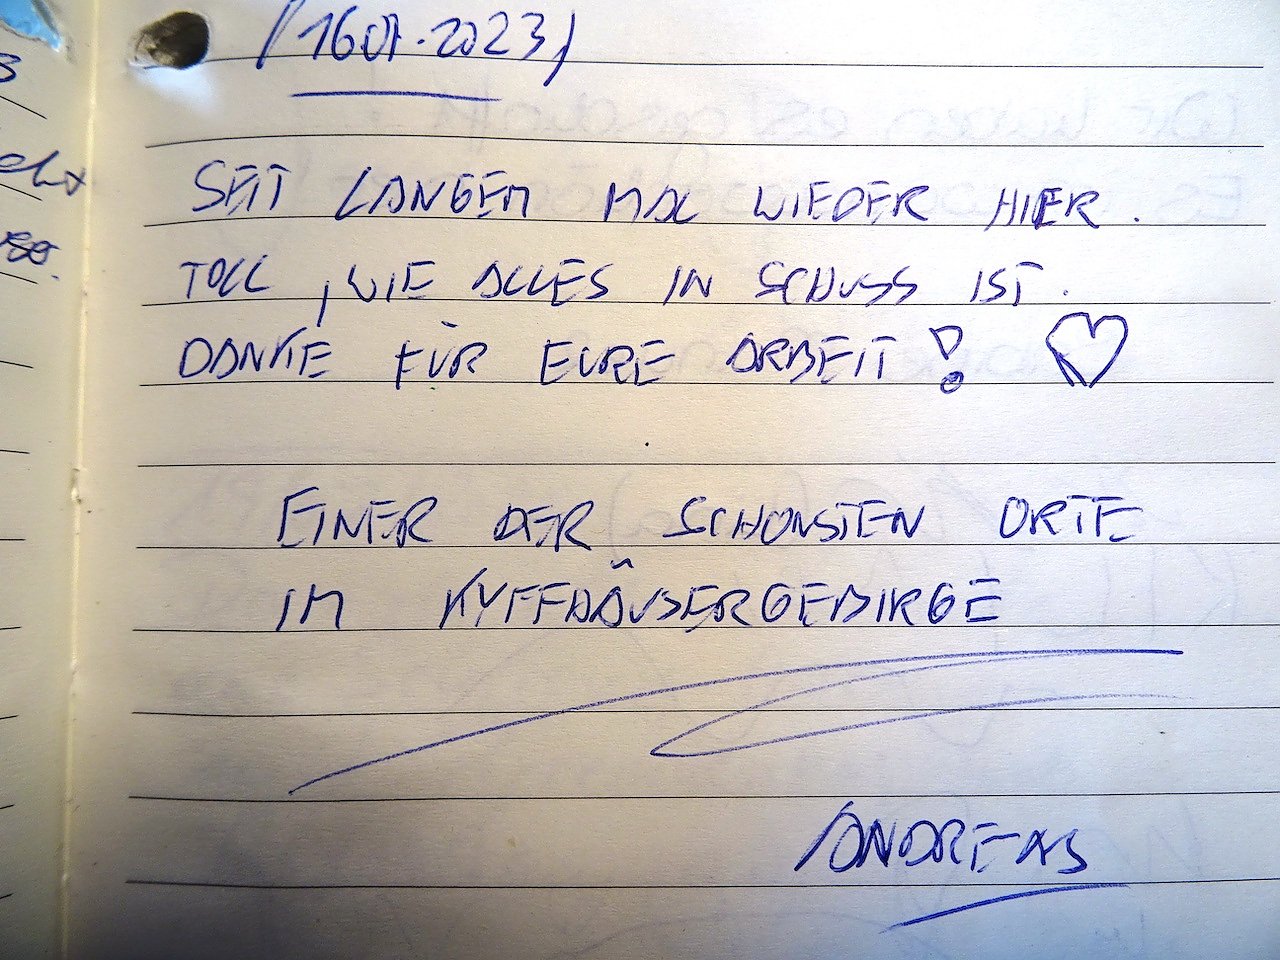 (1601.2023)
SEIT LANGEM MAL WIEDER HIER.
TOLL, WIE ALLES IN SCHUSS IST.
DANKE FÜR EURE ARBEIT!
EINER DER SCHONSTEN ORTE
IM KYFFHÄUSERGEBIRGE
ANDREAS